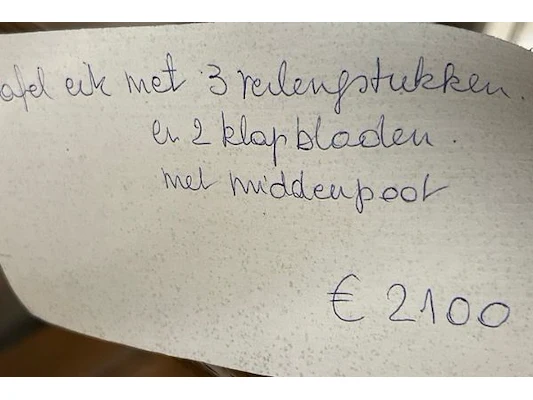 afel eik met 3 verlengstukken.
en 2 klapbladen.
met middenpoot
€ 2100